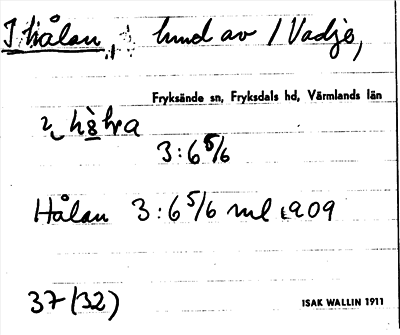 I hålan, hund av / Vadje,
Fryksände sn, Fryksdals hd, Värmlands län
3:6 5/6
Hålan 3:6 5/6 ml 1909
37 (32)
ISAK WALLIN 1911